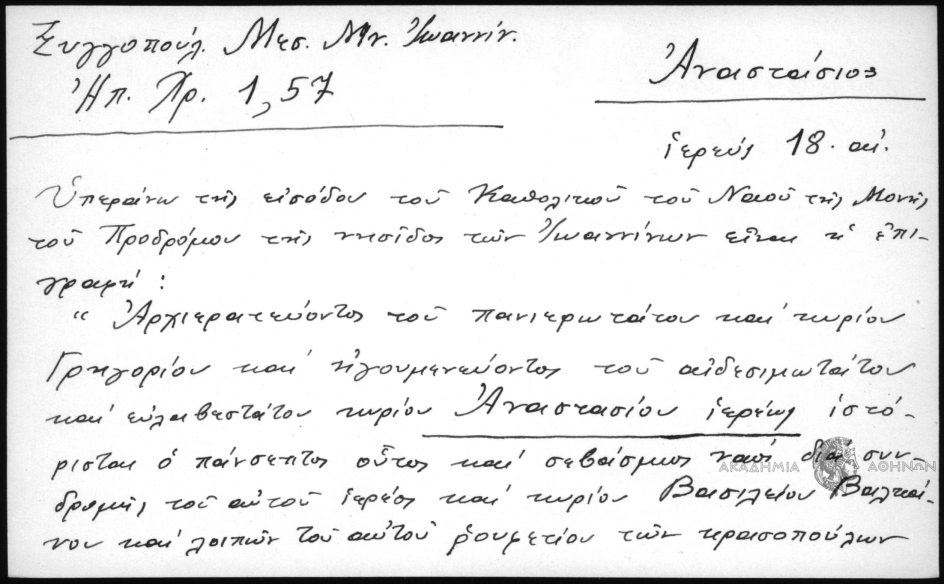 Ξυγγοπούλ. Μεσ. Μν. Ἰωαννίν.
Ἠπ. Χρ. 1, 57
Ἀναστάσιος
ἱερεύς 18. αἰ.
Ὑπεράνω τῆς εἰσόδου τοῦ Καθολικοῦ τοῦ Ναοῦ τῆς Μονῆς
τοῦ Προδρόμου τῆς νησῖδος τῶν Ἰωαννίνων εἶναι ἡ ἐπι-
γραφή :
“ Ἀρχιερατεύοντος τοῦ πανιερωτάτου καί κυρίου
Γρηγορίου καί ἡγουμενεύοντος τοῦ αἰδεσιμωτάτου
καί εὐλαβεστάτου κυρίου Ἀναστασίου ἱερέως ἱστό-
ρισται ὁ πάνσεπτος οὗτος καί σεβάσμιος ναός διά συν-
δρομῆς τοῦ αὐτοῦ ἱερέος καί κυρίου Βασιλείου Βαλκά-
νου καί λοιπῶν τοῦ αὐτοῦ ῥουφετίου τῶν κρασοπούλων
ΑΚΑΔΗΜΙΑ ΑΘΗΝΩΝ